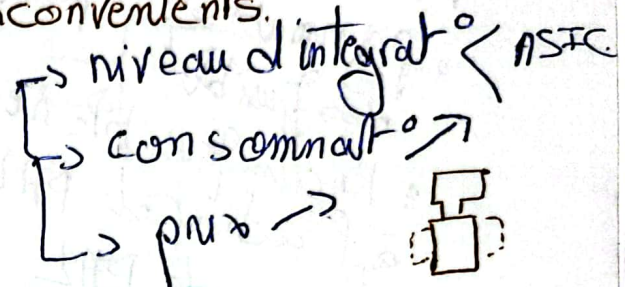 convenients.
→ niveau d'integrat° < ASIC
→ consommat° ↗
→ prix ↗